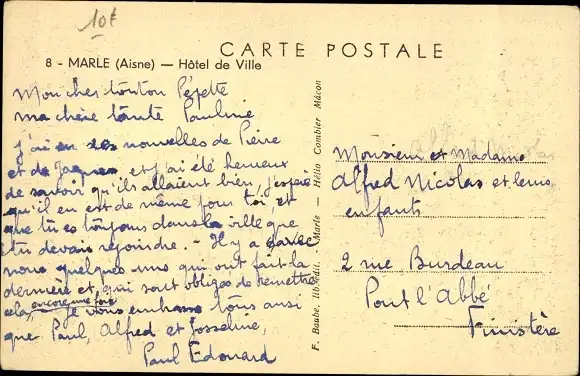 10f
CARTE POSTALE
8 - MARLE (Aisne) — Hôtel de Ville
Mon cher tonton Pépette
ma chère tante Pauline
j'ai eu des nouvelles de Pierre
et de Jacques et j'ai été heureux
de savoir qu'ils allaient bien, j'espère
qu'il en est de même pour toi, et
que tu es toujours dans la ville que
tu devais rejoindre. - Il y a avec
nous quelques uns qui ont fait la
dernière et qui sont obligés de remettre
cela, encore une fois je vous embrasse tous ainsi
que Paul, Alfred et Josseline,
Paul Edouard
F. Baube, lib. édit., Marle — Hélio Combier Mâcon
Monsieur et Madame
Alfred Nicolas et leurs
enfants
2 rue Burdeau
Pont l'Abbé
Finistère